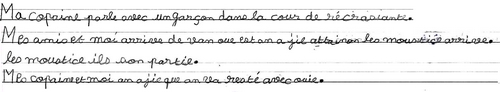 Ma copaine parle avec un garçon dans la cour de récrasiante.
Mes amis et moi arrive de van que est an a jie attainon les moustice arrive.
les moustice ils son partie.
Mes copaine et moi an a jie que an va resté avec ouie.